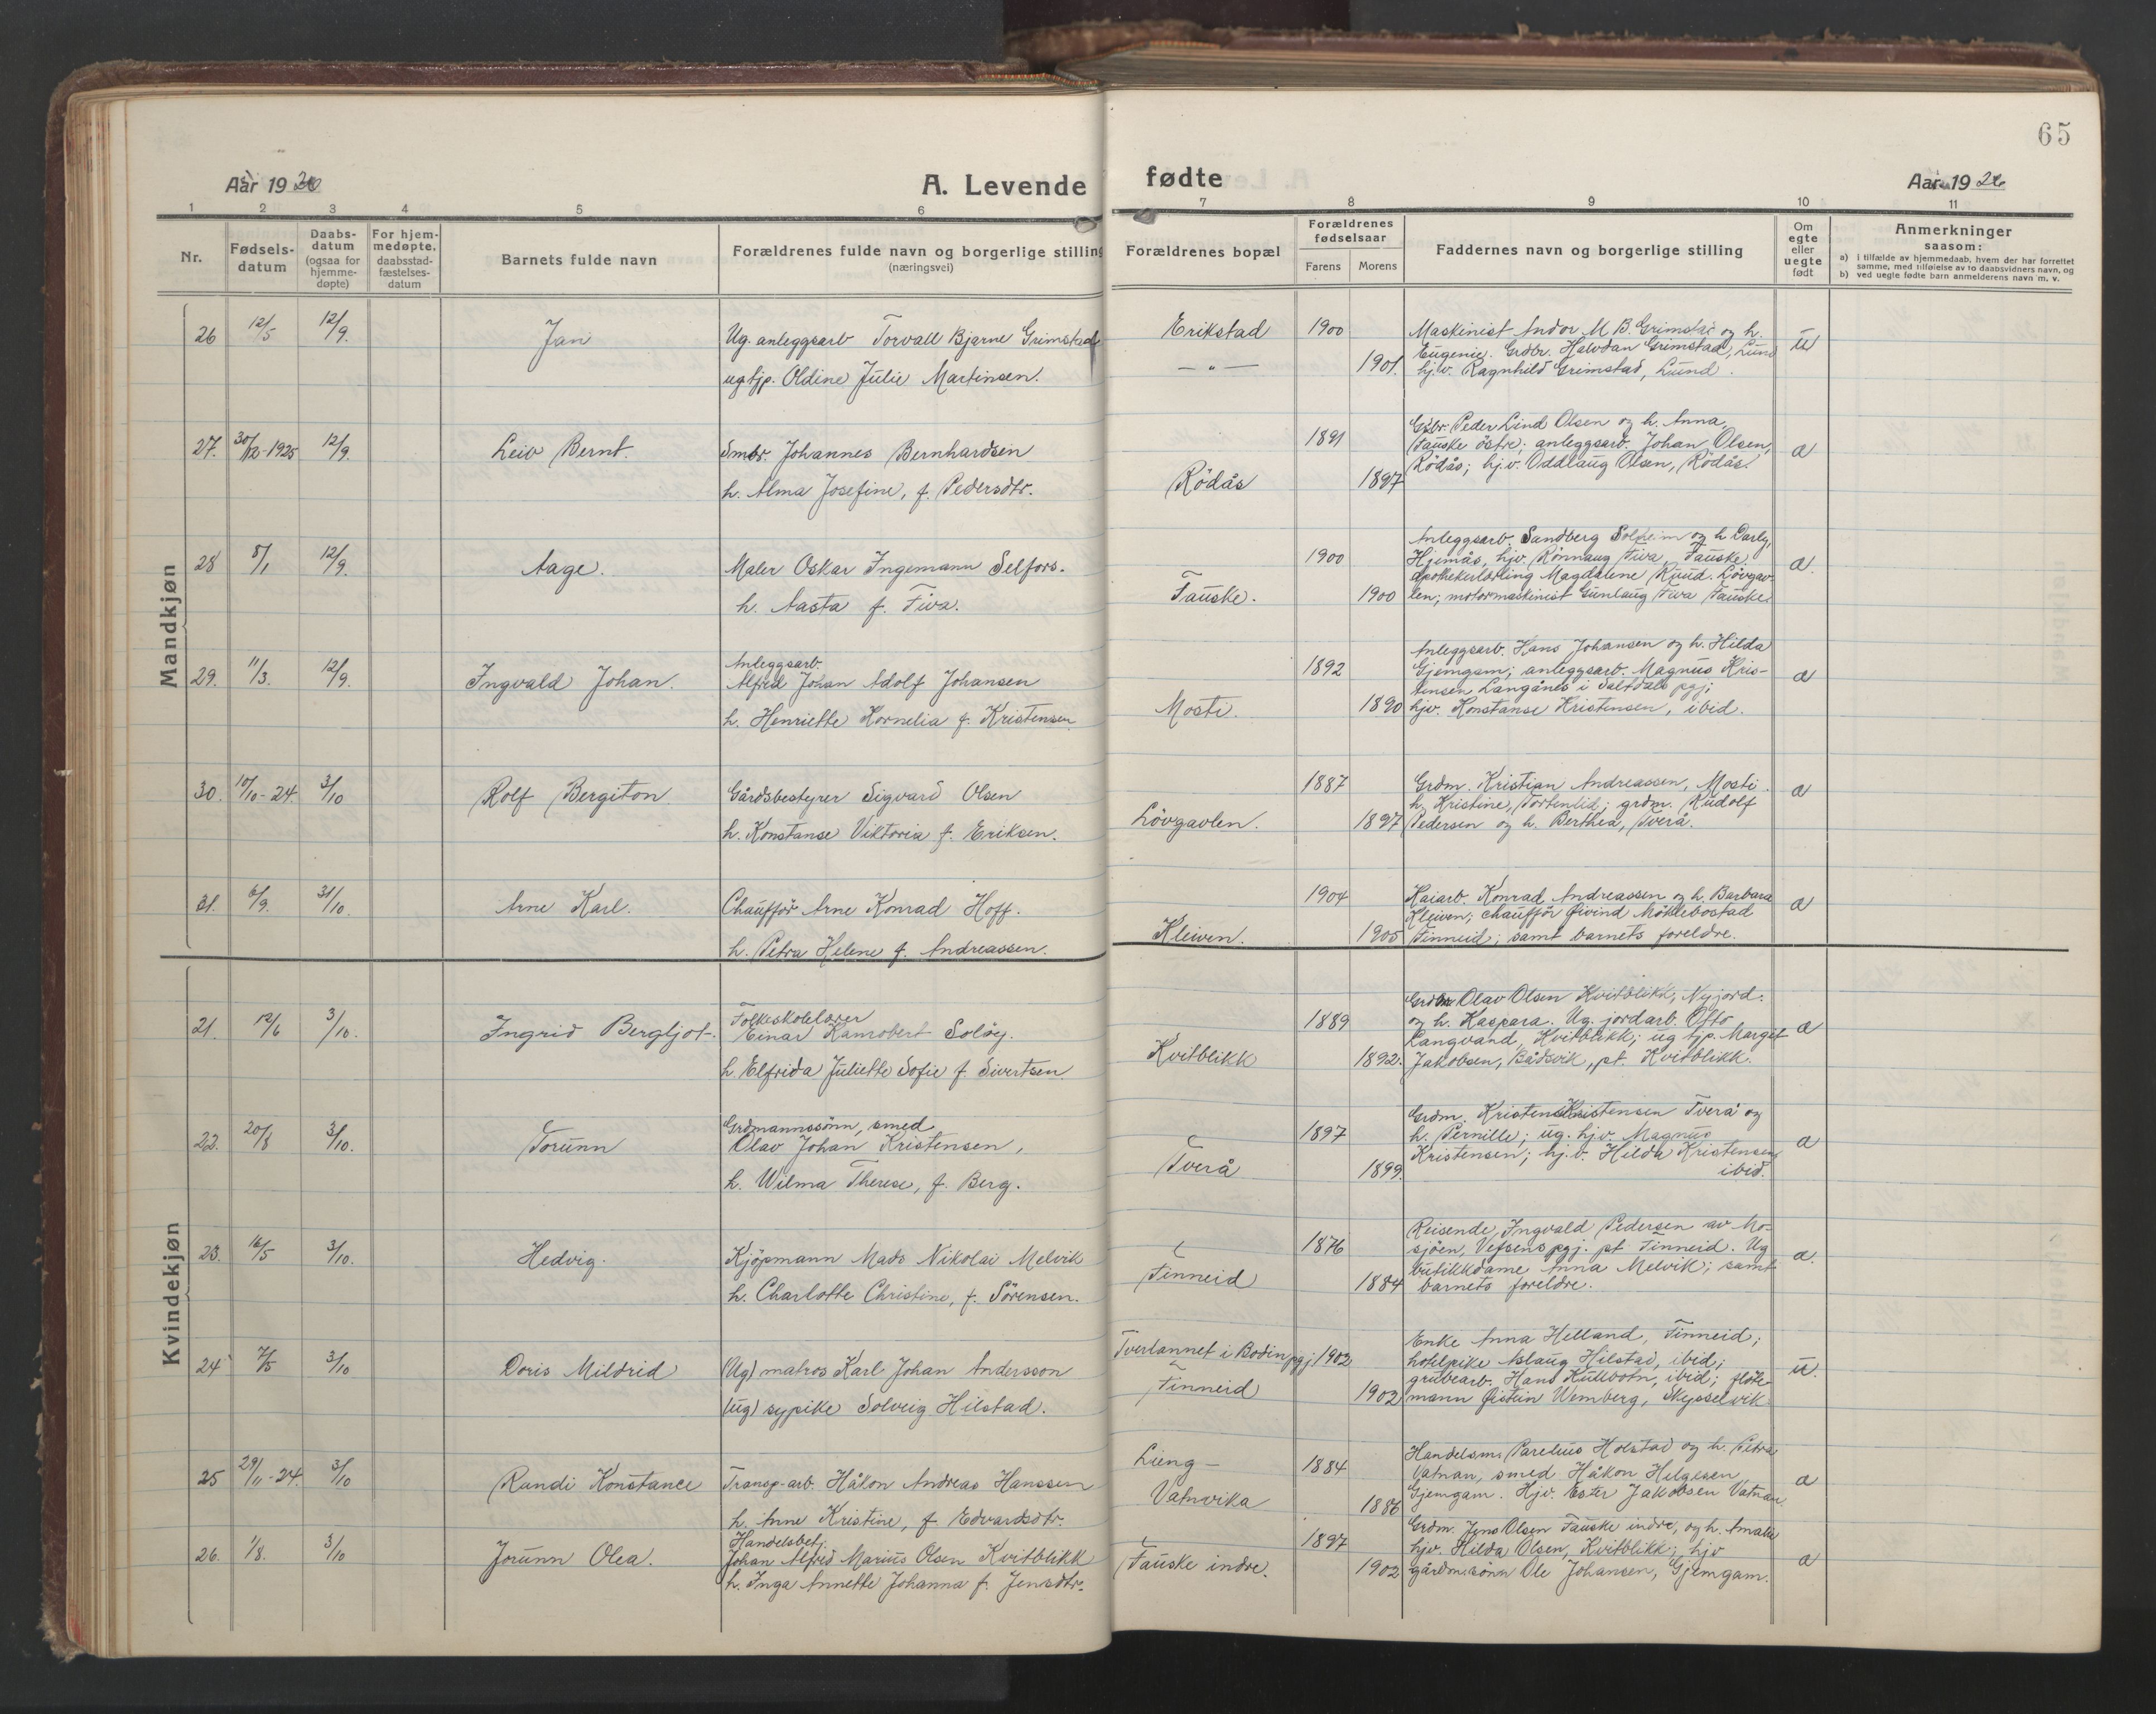 65
Aar 1926
A. Levende
fødte
Aar 1926
1 2 3 4 5 6 7 8 9 10 11
Nr.
Fødsels-
datum
Daabs-
datum
(ogsaa for
hjemme-
døpte)
For hjem-
medøpte,
daabsstad-
fæstelses-
datum
Barnets fulde navn
Forældrenes fulde navn og borgerlige stilling
(næringsvei)
Forældrenes bopæl
Forældrenes
fødselsaar
Farens Morens
Faddernes navn og borgerlige stilling
Om
egte
eller
uegte
født
Anmerkninger
saasom:
a) i tilfælde av hjemmedaab, hvem der har forrettet
samme, med tilføielse av to daabsvidners navn, og
b) ved uegte fødte barn anmelderens navn m. v.
Mandkjøn
26 12/5 12/9. Jan
Ug. anleggsarb Torvall Bjarne Grimstad
ugtjp. Oldine Julie Martinsen.
Erikstad 1900
— " — 1901.
Maskinist Andor M B. Grimstad og h.
Eugenie. Grdbr. Halvdan Grimstad, Lund
hj.v. Ragnhild Grimstad, Lund.
u
27. 30/12-1925 12/9. Leiv Bernt.
Smbr. Johannes Bernhardsen
h. Alma Josefine, f. Pedersdtr.
1891
Rödås 1897
Gbr. Peder Lind Olsen og h. Anna,
Fauske östre; anleggsarb. Johan Olsen,
Rödås; hj.v. Oddlaug Olsen, Rödås.
a
28 8/1 12/9. Aage.
Maler Oskar Ingemann Selfors.
h. Aasta f. Tiva.
1900
Fauske. 1900
Anleggsarb. Sandberg Solheim og h Darly,
Hjemås, hjv. Rönnaug Tiva, Fauske.
apothekerlærling Magdalene Ruud. Lövgav-
len; motormaskinist Gunlaug Tiva Fauske.
a.
29. 11/3. 12/9. Ingvald Johan.
Anleggsarb.
Alfred Johan Adolf Johansen
h. Henriette Kornelia f. Kristensen
1892
Mosti. 1890
Anleggsarb. Hans Johansen og h. Hilda
Gjemgam; anleggsarb. Magnus Kris-
tensen Langånes i Saltdals pgj;
hjv. Konstanse Kristensen, ibid.
a
30. 10/10-24. 3/10 Rolf Bergiton
Gårdsbestyrer Sigvard Olsen
h. Konstanse Viktoria f. Eriksen.
1887
Lövgavlen. 1897
Grdm. Kristian Andreassen, Mosti.
h. Kristine, Tortenlid; grdm. Rudolf
Pedersen og h. Berthea, Tverå.
a
31. 6/9. 31/10. Arne Karl.
Chauffør Arne Konrad Hoff.
h. Petra Helene f. Andreassen.
1904
Kleiven. 1905
Kaiarb. Konrad Andreassen og h. Barbara
Kleiven; chauffør Øivind Möklebostad
Finneid; samt barnets foreldre.
a
Kvindekjøn
21. 12/6 3/10. Ingrid Bergljot.
Folkeskolelærer
Einar Kanrobert Solöy.
h. Elfrida Juliette Sofie f. Sivertsen
1889
Kvitblikk 1892.
Grdm Olav Olsen Kvitblikk, Nyjord.
og h. Kaspara. Ug. jordarb. Otto
Langvand, Kvitblikk; ug tjp. Margit
Jakobsen, Bådsvik, pt. Kvitblikk.
a
22. 20/8 3/10. Torunn
Grdmannssönn, smed
Olav Johan Kristensen,
h. Wilma Therese, f. Berg.
1897
Tverå 1899.
Grdm. Kristen Kristensen Tverå og
h. Pernille; ug. hjv. Magnus
Kristensen; hj.v. Hilda Kristensen
ibid.
a
23. 16/5 3/10. Hedvig.
Kjöpmann Mads Nikolai Melvik
h. Charlotte Christine, f. Sörensen.
1876
Finneid 1884
Reisende, Ingvald Pedersen av Mo-
sjöen, Vefsens pgj. pt Finneid. Ug
butikkdame Anna Melvik; samt
barnets foreldre.
a.
24 7/5 3/10 Doris Mildrid
(Ug) matros Karl Johan Andersson
(ug) sypike Solveig Hilstad.
Tverlannet i Bodin pgj. 1902
Finneid 1902
Enke Anna Helland, Finneid;
hotelpike Aslaug Hilstad, ibid;
grubearb. Hans Kullbotn, ibid; fløte-
mann Øistein Wemberg, Skysselvik
u.
25 29/11-24. 3/10 Randi Konstance
Transp.-arb. Håkon Andreas Hanssen
h. Anne Kristine, f. Edvardsdtr.
Lieng- 1884
Vatnvika 1886
Handelsm. Parelius Holstad og h. Petra
Vatnan, smed Håkon Helgesen
Gjemgam. Hjv. Ester Jakobsen Vatnan
a
26. 1/8. 3/10 Jorunn Olea.
Handelsbetj.
Johan Alfred Marius Olsen Kvitblikk
h. Inga Annette Johanna f. Jensdtr.
1897
Fauske indre. 1902
Grdm. Jens Olsen Fauske indre, og h. Amalie
hjv. Hilda Olsen, Kvitblikk; hjv
gårdm.sönn Ole Johansen, Gjemgam.
a